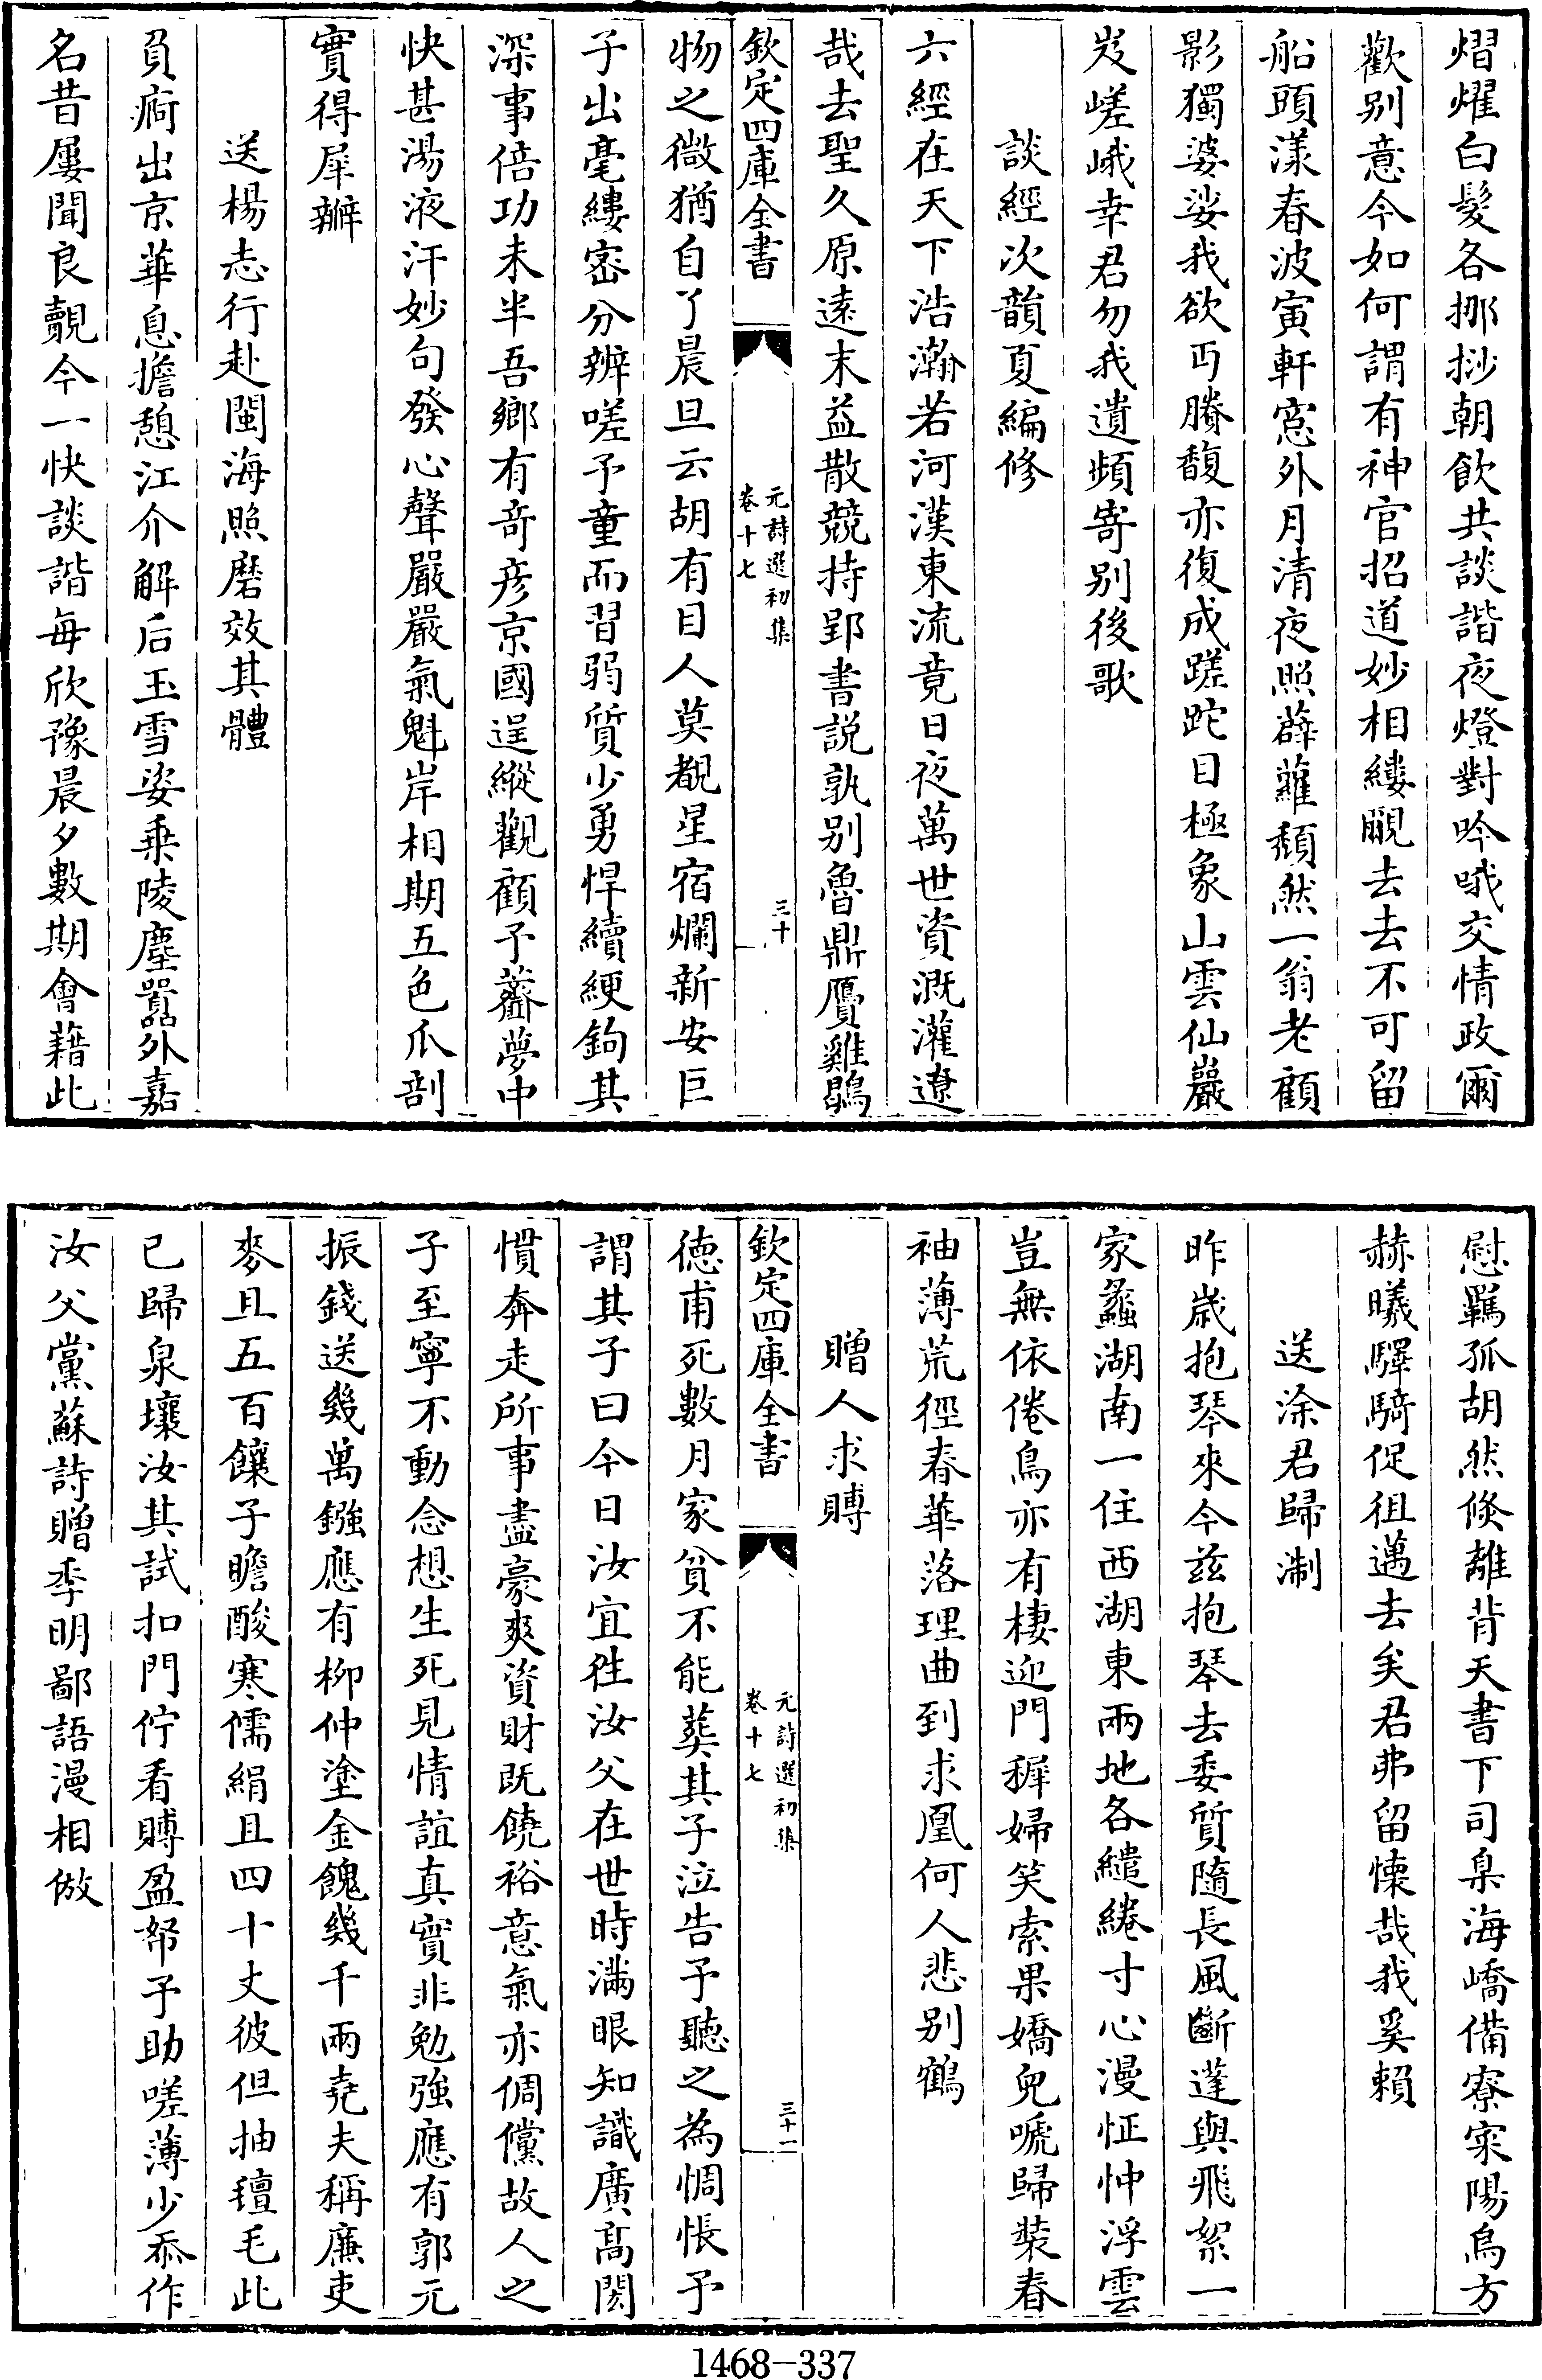 熠燿白髮各挪挱朝飲共談諧夜燈對吟哦交情政爾
歡别意今如何謂有神官招道妙相縷覼去去不可留
船頭漾春波寅軒窓外月清夜照薜蘿頽然一翁老顧
影獨婆娑我欲丐賸馥亦復成蹉跎目極象山雲仙巖
岌嵯峨幸君勿我遺頻寄别後歌
談經次韻夏編修
六經在天下浩瀚若河漢東流竟日夜萬世資溉灌遼
哉去聖久原遠末益散競持郢書説孰别魯鼎贋雞鶋
欽定四庫全書
元詩選初集
卷十七
三十
物之微猶自了晨旦云胡有目人莫覩星宿爛新安巨
子出毫縷密分辨嗟予童而習弱質少勇悍續綆鉤其
深事倍功未半吾鄉有竒彦京國逞縱觀顧予虀夢中
快甚湯液汗妙句發心聲嚴嚴氣魁岸相期五色爪剖
實得犀瓣
送楊志行赴閩海照磨效其體
負痾出京華息擔憩江介解后玉雪姿乗陵塵囂外嘉
名昔屢聞良覿今一快談諧毎欣豫晨夕數期會藉此
慰羈孤胡然倏離背天書下司臬海嶠備寮寀陽烏方
赫曦驛騎促徂邁去矣君弗留懐哉我奚賴
送涂君歸淛
昨嵗抱琴來今兹抱琴去委質隨長風斷蓬與飛絮一
家蠡湖南一住西湖東兩地各繾綣寸心漫怔忡浮雲
豈無依倦鳥亦有棲迎門穉婦笑索果嬌兒嗁歸裝春
袖薄荒徑春華落理曲到求凰何人悲别鶴
贈人求賻
欽定四庫全書
元詩選初集
卷十七
三十一
徳甫死數月家貧不能葬其子泣告予聽之為惆悵予
謂其子曰今日汝宜徃汝父在世時滿眼知識廣髙閎
慣奔走所事盡豪爽資財既饒裕意氣亦倜儻故人之
子至寧不動念想生死見情誼真實非勉強應有郭元
振錢送幾萬鏹應有柳仲塗金餽幾千兩堯夫稱亷吏
麥且五百饟子瞻酸寒儒絹且四十丈彼但抽氊毛此
已歸泉壤汝其試扣門佇看賻盈帑予助嗟薄少忝作
汝父黨蘇詩贈季明鄙語漫相倣
1468-337